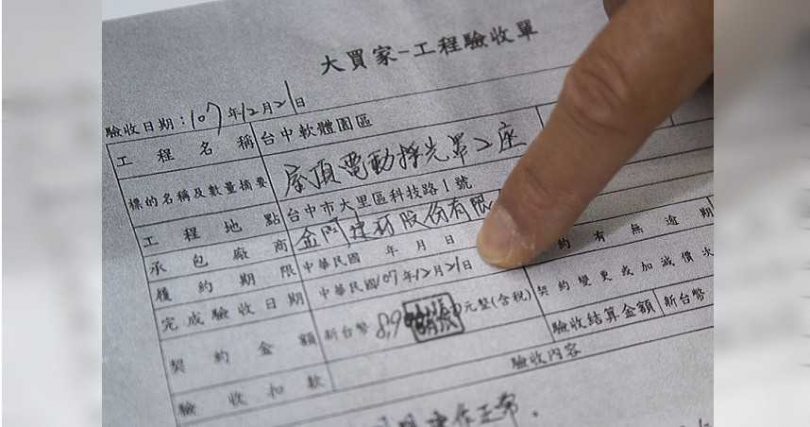 大買家-工程驗收單
驗收日期:107年12月21日
工程名稱 台中軟體園區
標的名稱及數量摘要 屋頂電動採光罩2座
工程地點 台中市大里區科技路1號
承包廠商 金門建材股份有限
履約期限 中華民國 年 月 日 約有無逾期
完成驗收日期 中華民國107年12月21日 契約變更或加減價次
契約金額 新台幣 8,9 元整(含稅) 驗收結算金額 新台幣
驗收扣款
驗收內容
正常.